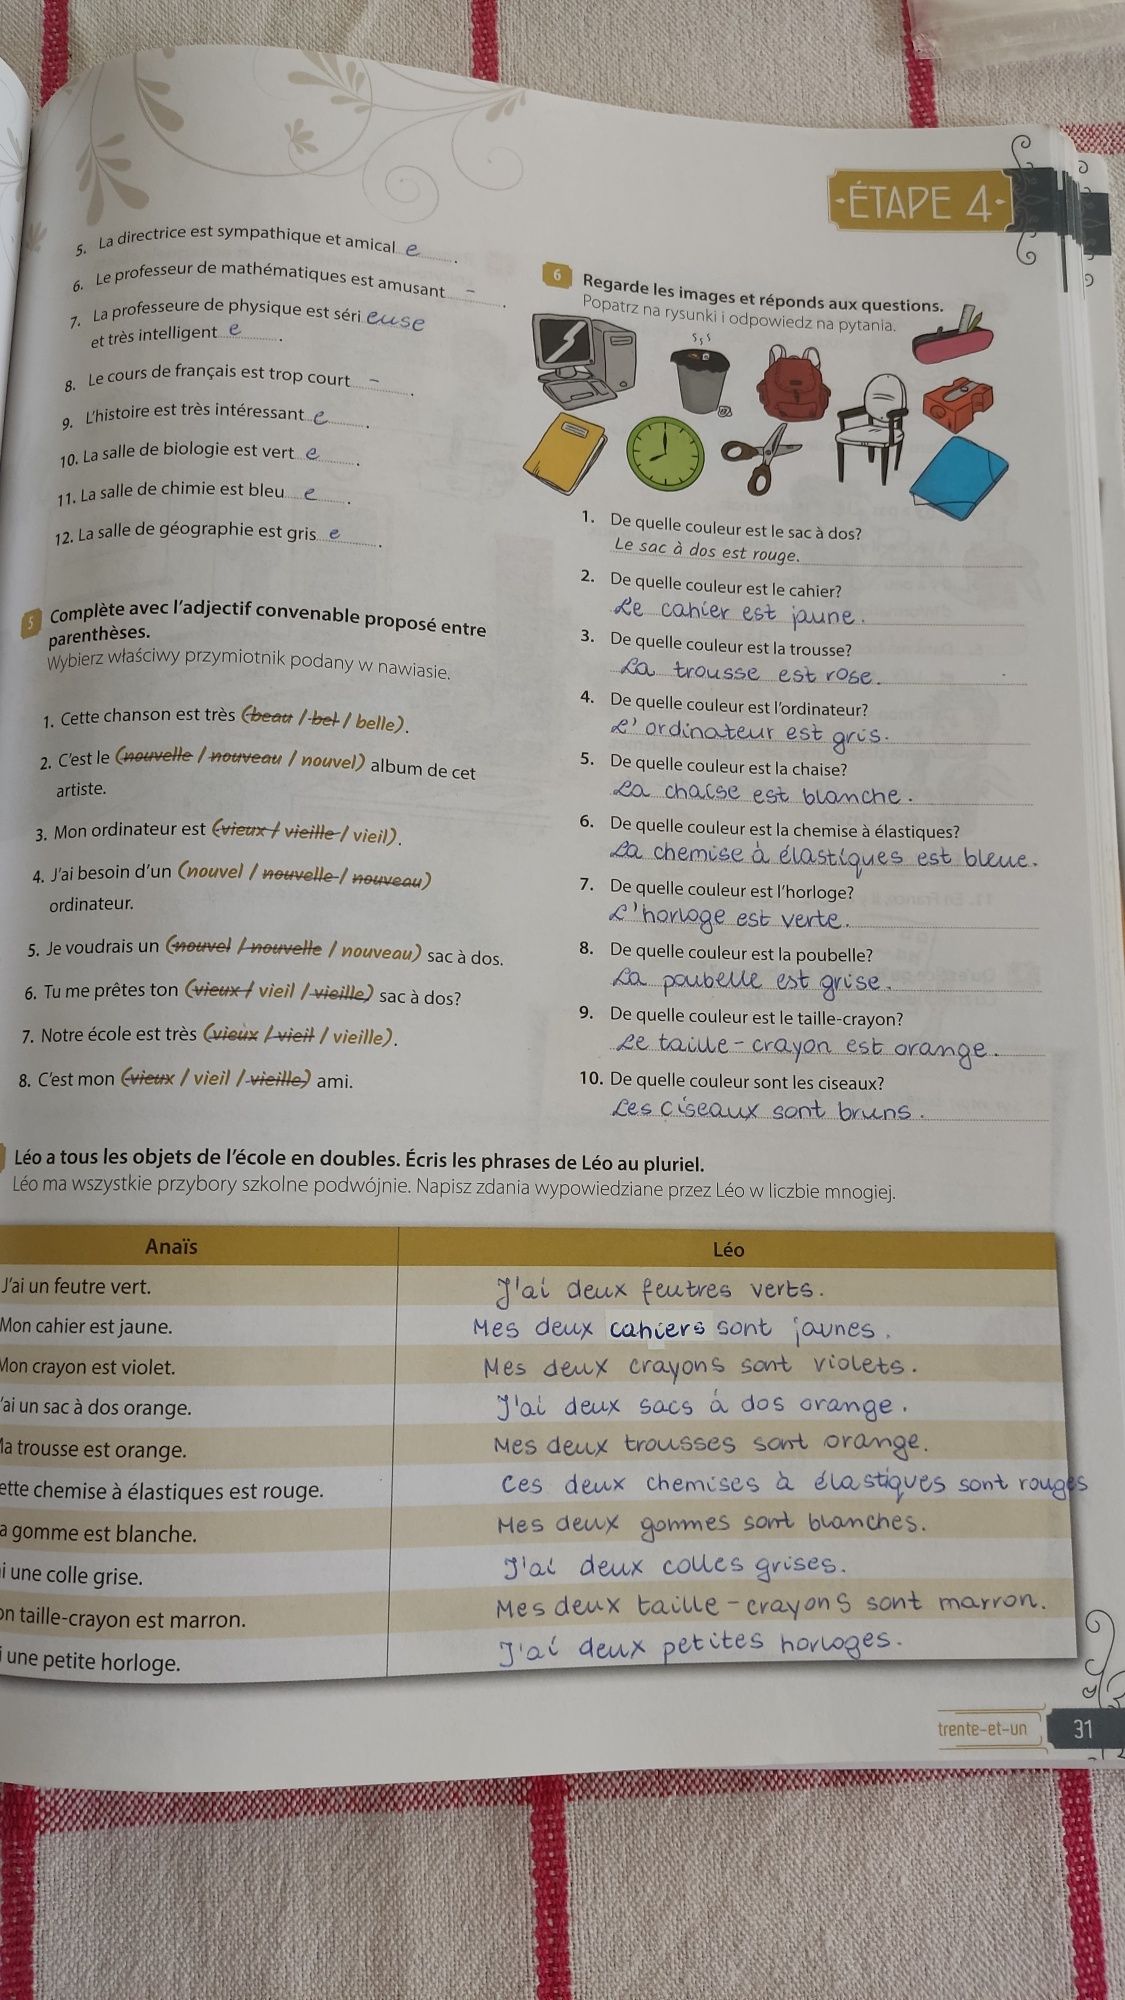 ÉTAPE 4
5. La directrice est sympathique et amical e .
6. Le professeur de mathématiques est amusant - .
7. La professeure de physique est séri euse
et très intelligent e .
8. Le cours de français est trop court - .
9. L'histoire est très intéressant e .
10. La salle de biologie est vert e .
11. La salle de chimie est bleu e .
12. La salle de géographie est gris e .
5 Complète avec l'adjectif convenable proposé entre
parenthèses.
Wybierz właściwy przymiotnik podany w nawiasie.
1. Cette chanson est très (beau / bel / belle).
2. C'est le (nouvelle / nouveau / nouvel) album de cet
artiste.
3. Mon ordinateur est (vieux / vieille / vieil).
4. J'ai besoin d'un (nouvel / nouvelle / nouveau)
ordinateur.
5. Je voudrais un (nouvel / nouvelle / nouveau) sac à dos.
6. Tu me prêtes ton (vieux / vieil / vieille) sac à dos?
7. Notre école est très (vieux / vieil / vieille).
8. C'est mon (vieux / vieil / vieille) ami.
6 Regarde les images et réponds aux questions.
Popatrz na rysunki i odpowiedz na pytania.
1. De quelle couleur est le sac à dos?
Le sac à dos est rouge.
2. De quelle couleur est le cahier?
Le cahier est jaune.
3. De quelle couleur est la trousse?
La trousse est rose.
4. De quelle couleur est l'ordinateur?
L'ordinateur est gris.
5. De quelle couleur est la chaise?
La chaise est blanche.
6. De quelle couleur est la chemise à élastiques?
La chemise à élastiques est bleue.
7. De quelle couleur est l'horloge?
L'horloge est verte.
8. De quelle couleur est la poubelle?
La poubelle est grise.
9. De quelle couleur est le taille-crayon?
Le taille-crayon est orange.
10. De quelle couleur sont les ciseaux?
Les ciseaux sont bruns.
Léo a tous les objets de l'école en doubles. Écris les phrases de Léo au pluriel.
Léo ma wszystkie przybory szkolne podwójnie. Napisz zdania wypowiedziane przez Léo w liczbie mnogiej.
Anaïs Léo
J'ai un feutre vert. J'ai deux feutres verts.
Mon cahier est jaune. Mes deux cahiers sont jaunes.
Mon crayon est violet. Mes deux crayons sont violets.
'ai un sac à dos orange. J'ai deux sacs à dos orange.
Ma trousse est orange. Mes deux trousses sont orange.
ette chemise à élastiques est rouge. Ces deux chemises à élastiques sont rouges
a gomme est blanche. Mes deux gommes sont blanches.
i une colle grise. J'ai deux colles grises.
on taille-crayon est marron. Mes deux taille-crayons sont marron.
i une petite horloge. J'ai deux petites horloges.
trente-et-un 31